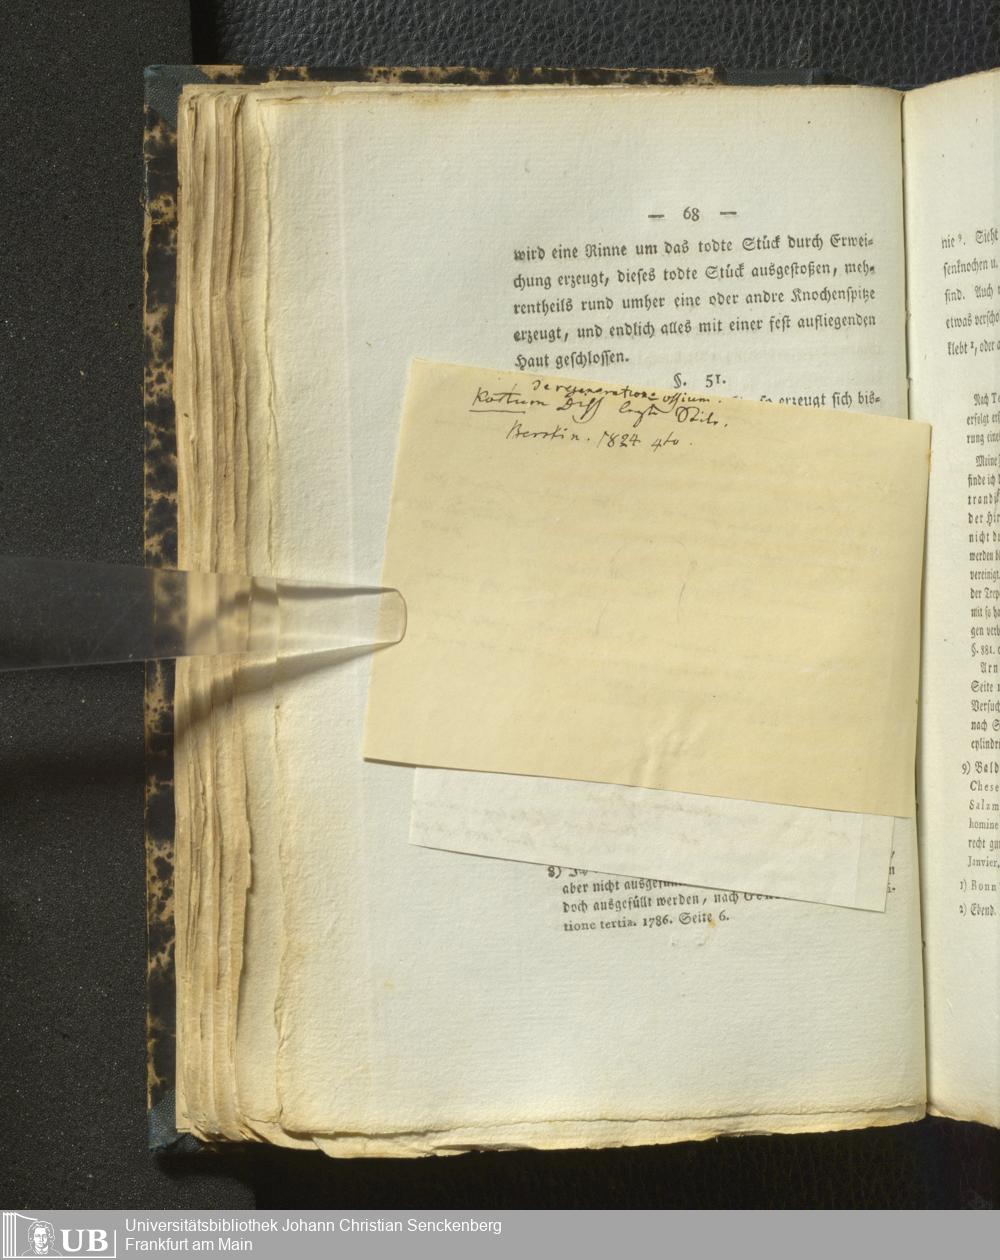 — 68 —
wird eine Rinne um das todte Stück durch Erwei-
chung erzeugt, dieses todte Stück ausgestoßen, meh-
rentheils rund umher eine oder andre Knochenspitze
erzeugt, und endlich alles mit einer fest aufliegenden
Haut geschlossen.
§. 51.
so erzeugt sich bis-
de regeneratione ossium.
Diss
Berolin. 1824 4to.
8)
aber nicht
doch ausgefüllt werden, nach
tione tertia. 1786. Seite 6.
nie 9. Sieht
senknochen u.
sind. Auch
etwas verscho
klebt 1, oder a
Nach Te
erfolgt
rung eine
Meine
finde ich
trandis
der Hir
nicht du
werden
vereinigt.
der Trep
mit so
gen verb
§. 881.
Arn
Seite 1
Versuch
nach S
cylindri
9) Bald
Chese
Salzm
homine
recht gut
Janvier,
1) Bonn
2) Ebend.
UB
Universitätsbibliothek Johann Christian Senckenberg
Frankfurt am Main